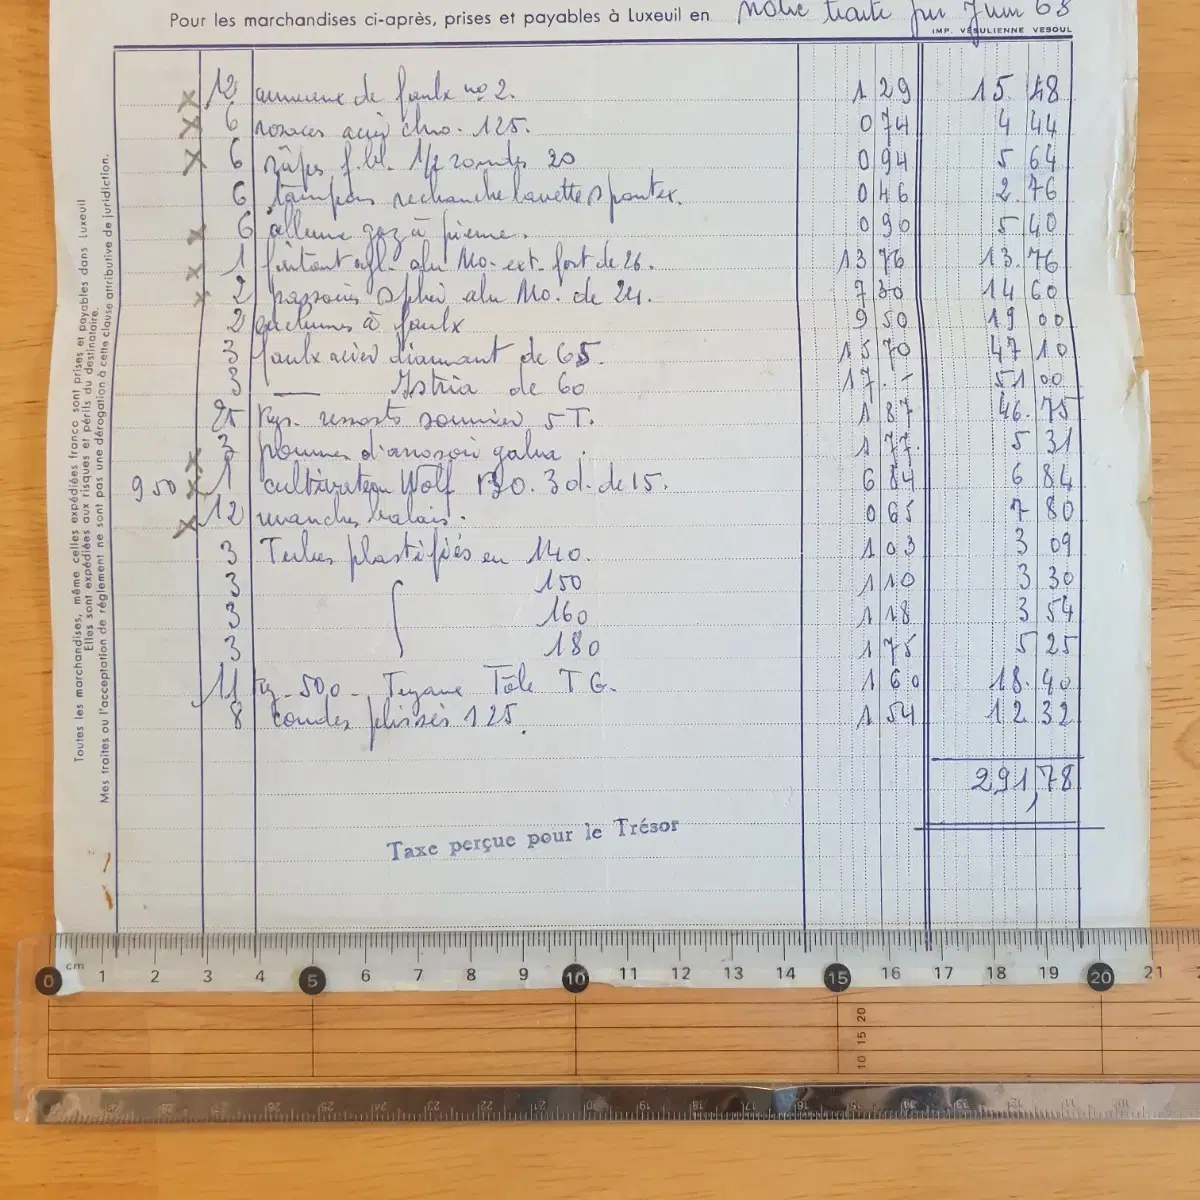 Pour les marchandises ci-après, prises et payables à Luxeuil en notre traite fin Juin 63
IMP. VÉSULIENNE VESOUL
12 anneaux de faulx no 2. 1 29 15 48
6 rosaces acier chro. 125. 0 74 4 44
6 râpes f. bl. 1/2 rondes 20 0 94 5 64
6 tampons rechanche lavettes spontex. 0 46 2.76
6 allume gaz à pierre. 0 90 5 40
1 alu Mo. ext. fort de 26. 13 76 13.76
2 passoires sphér alu Mo. de 24. 7 30 14 60
2 enclumes à faulx 9 50 19 00
3 faulx acier diamant de 65. 15 70 47 10
3 — Istria de 60 17. - 51 00
25 Kgs. ressorts sommier 5 T. 1 87 46.75
3 pommes d'arrosoir galva. 1 77. 5 31
950 1 cultivateur Wolf 3 d. de 15. 6 84 6 84
12 manches balais. 0 65 7 80
3 Tubes plastifiés en 140. 1 03 3 09
3 150 1 10 3 30
3 160 1 18 3 54
3 180 1 75 5 25
11 Kg. 500 - Tuyaux Tôle T G. 1 60 18.40
8 coudes plissés 125. 1 54 12 32
291,78
Taxe perçue pour le Trésor
Toutes les marchandises, même celles expédiées franco sont prises et payables dans Luxeuil
Elles sont expédiées aux risques et périls du destinataire.
Mes traites ou l'acceptation de règlement ne sont pas une dérogation à cette clause attributive de juridiction.
0 cm 1 2 3 4 5 6 7 8 9 10 11 12 13 14 15 16 17 18 19 20 21
10 15 20